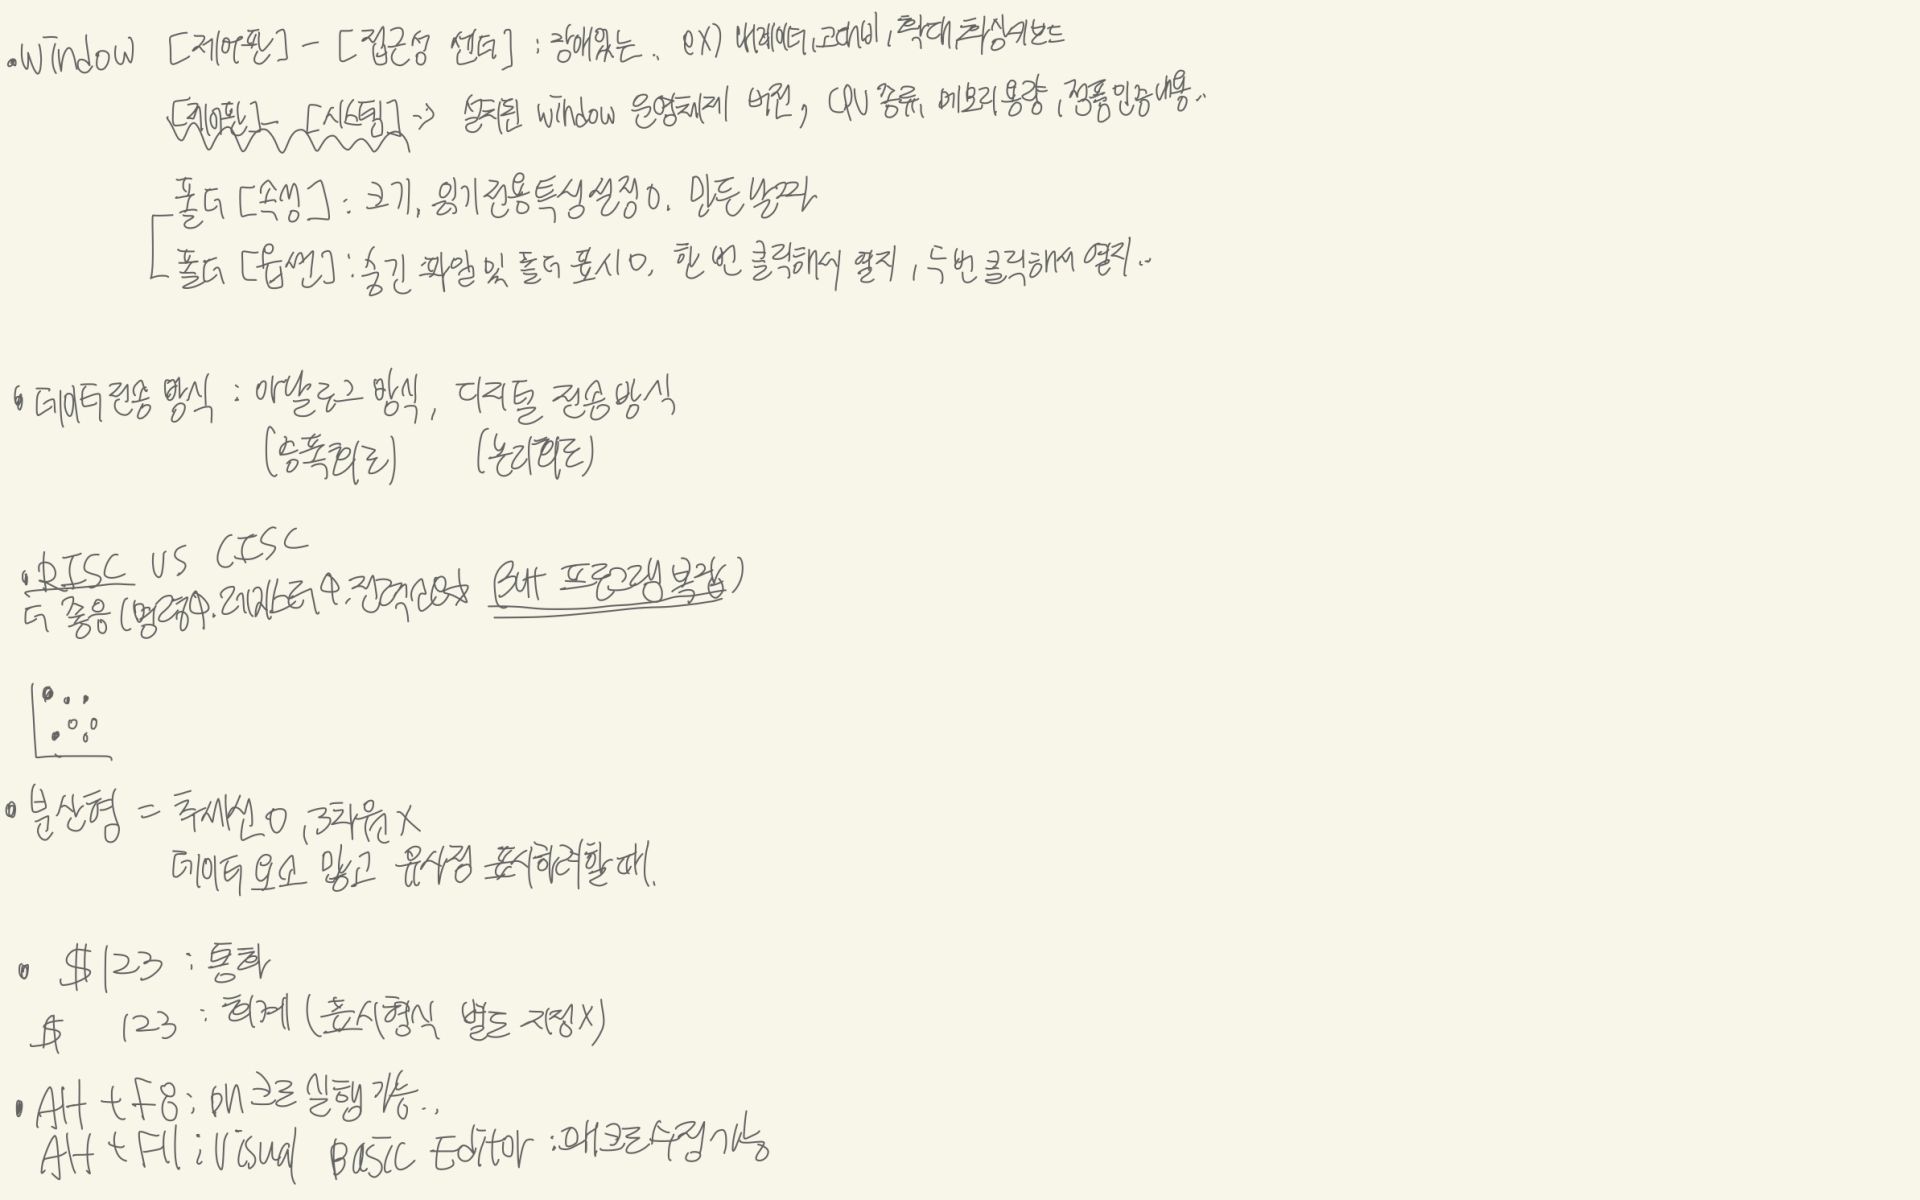 • Window [제어판] - [접근성 센터] : 장애있는.. ex) 내레이터, 고대비, 확대, 화상키보드
[제어판] - [시스템] → 설치된 window 운영체제 버전, CPU 종류, 메모리 용량, 정품인증내용..
폴더 [속성] : 크기, 읽기전용특성설정 O. 만든날짜
폴더 [옵션] : 숨긴 파일 및 폴더 표시 O. 한 번 클릭해서 열지, 두번 클릭해서 열지..
• 데이터전송 방식 : 아날로그 방식, 디지털 전송방식
(증폭회로) (논리회로)
• RISC vs CISC
더 좋음 (명령↓. 레지스터↑. But 프로그램 복잡)
• 분산형 = 추세선 O, 3차원 X
데이터 요소 많고 유사점 표시하려할 때.
• $123 : 통화
$ 123 : 회계 (표시형식 별도 지정 X)
• Alt + F8 : 매크로 실행 가능..
Alt + F11 : Visual Basic Editor : 매크로 수정 가능